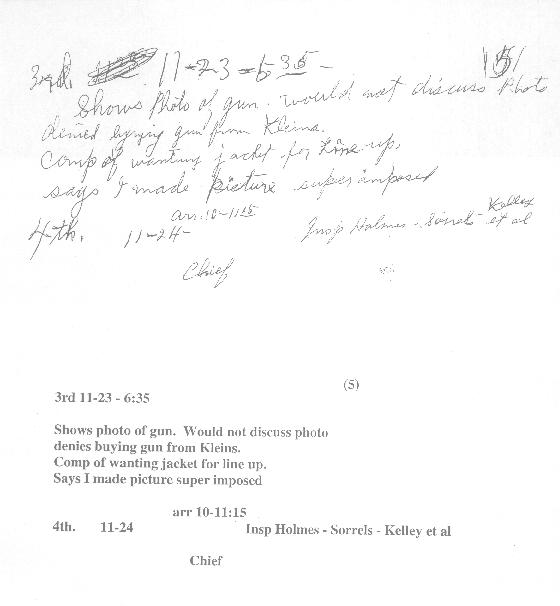 3rd. 11-23-635-
151
Shows Photo of gun. would not discuss Photo
denied buying gun from Kleins.
Comp of wanting jacket for Line up.
says I made picture super imposed
arr. 10-1115
4th. 11-24- Insp Holmes - Sorrels Kelley et al
Chief
(5)
3rd 11-23 - 6:35
Shows photo of gun. Would not discuss photo
denies buying gun from Kleins.
Comp of wanting jacket for line up.
Says I made picture super imposed
arr 10-11:15
4th. 11-24 Insp Holmes - Sorrels - Kelley et al
Chief